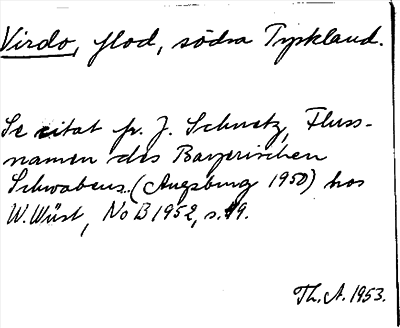 Virdo, flod, södra Tyskland.
Se citat fr. J. Schnetz, Fluss-
namen des Bayerischen
Schwabens. (Augsburg 1950) hos
W. Wüst, NoB 1952, s. 49.
Th. A. 1953.